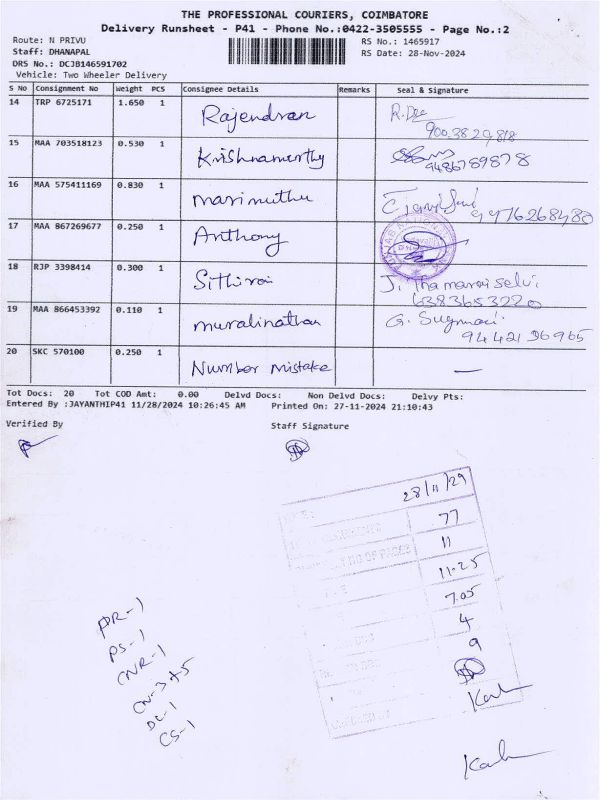 THE PROFESSIONAL COURIERS, COIMBATORE
Delivery Runsheet - P41 - Phone No.:0422-3505555 - Page No.:2
Route: N PRIVU
RS No.: 1465917
Staff: DHANAPAL
RS Date: 28-Nov-2024
DRS No.: DCJB146591702
Vehicle: Two Wheeler Delivery
S No Consignment No Weight PCS Consignee Details Remarks Seal & Signature
14 TRP 6725171 1.650 1 Rajendran
15 MAA 703518123 0.530 1 Krishnamorthy 9486789878
16 MAA 575411169 0.830 1 marimuthu
17 MAA 867269677 0.250 1 Anthony
18 RJP 3398414 0.300 1 J. Thamarai selvi
6383653220
19 MAA 866453392 0.110 1 muralinathan G.
94421 96965
20 SKC 570100 0.250 1 Number mistake —
Tot Docs: 20 Tot COD Amt: 0.00 Delvd Docs: Non Delvd Docs: Delvy Pts:
Entered By :JAYANTHIP41 11/28/2024 10:26:45 AM Printed On: 27-11-2024 21:10:43
Verified By Staff Signature
28/11/29
77
NO OF PAGES 11
11.25
7.05
4
9
PR-1
PS-1
CNR-1
CN-3+5
DC-1
CS-1